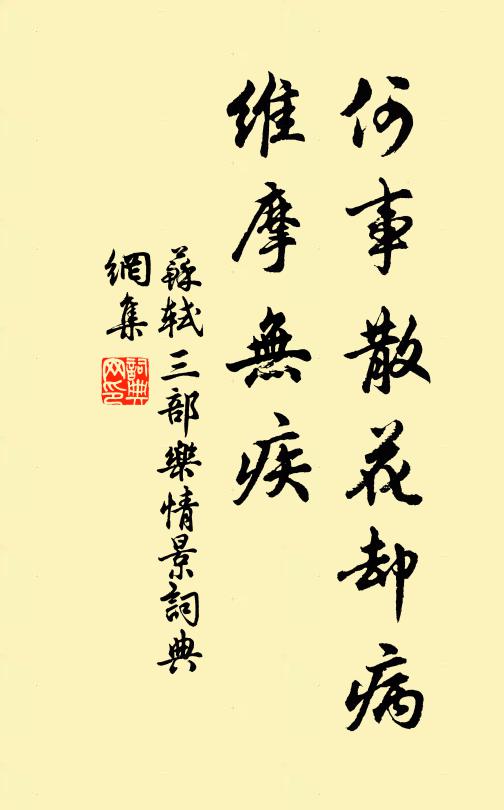 何事散花却病
維摩無疾
蘇軾三部樂情景詞典
網集
詞典
网印